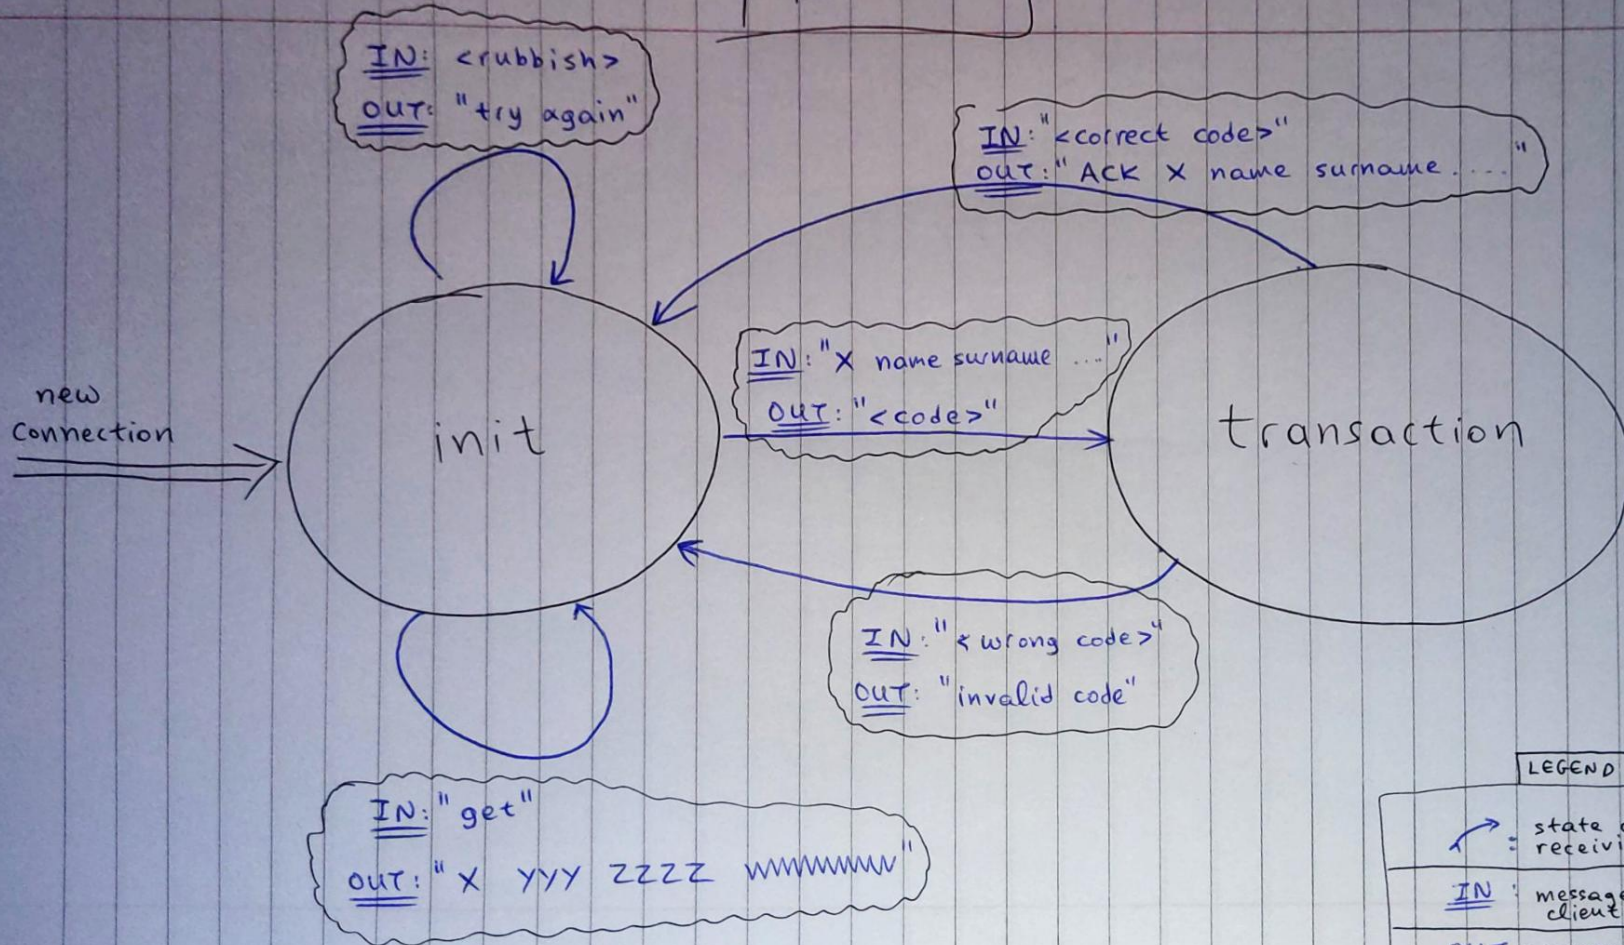 IN: <rubbish>
OUT: "try again"
IN: "<correct code>"
OUT: "ACK X name surname ...."
new
connection
init
IN: "X name surname ...."
OUT: "<code>"
transaction
IN: "<wrong code>"
OUT: "invalid code"
IN: "get"
OUT: "X YYY ZZZZ WWWWWWWW"
LEGEND
: state
receivi
IN : message
client